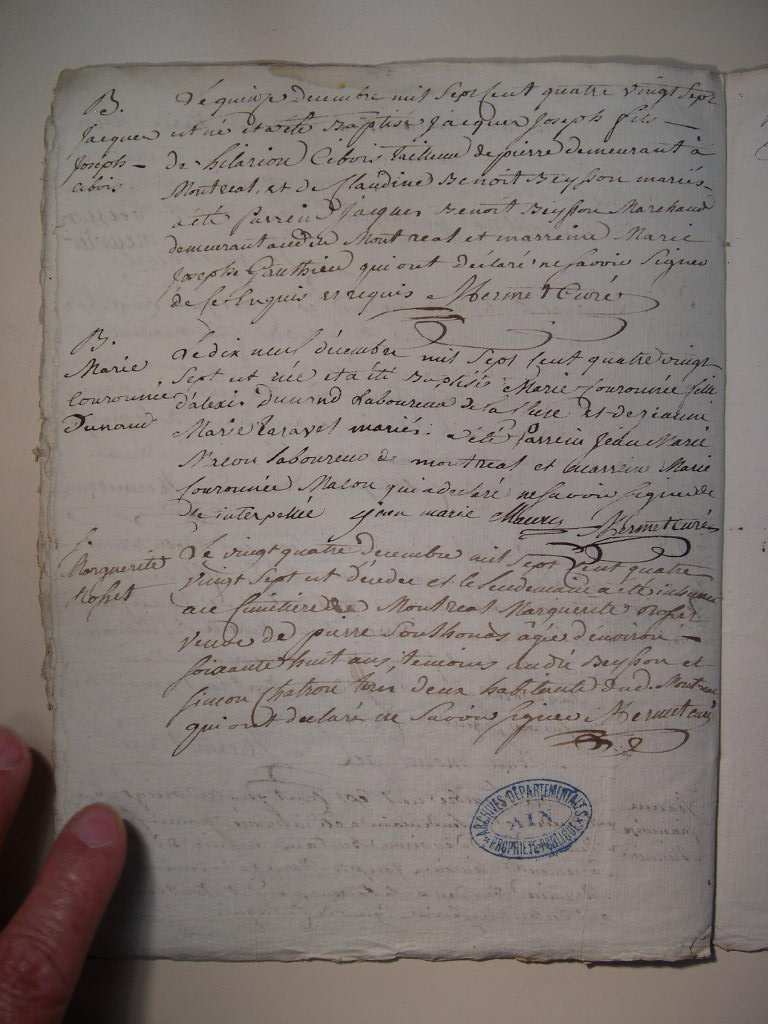 B.
Jacques
Joseph
cibois
Le quinze decembre mil sept cent quatre vingt sept
est né et a été Baptisé Jacques Joseph fils
de hilarion Cibois tailleur de pierre demeurant à
Montreal, et de Claudine Benoit Beysson mariés
a été parrein Jacques Benoit Beysson Marchand
demeurant audit Montreal et marreine Marie
Joseph Gauthier qui ont déclaré ne savoir signer
de ce enquis et requis Mermet Curé
B.
Marie
Couronnée
Dunand
Le dix neuf décembre mil sept cent quatre vingt
sept est née et a été Baptisée Marie Couronnée fille
d'alexis Dunand Laboureur de la Cluse et de jeanne
Marie Ravet mariés: a été parrein jean Marie
laboureur de montreal et marreine Marie
Couronnée qui a declaré ne savoir signer de
ce interpellée jean marie Mermet Curé
S.
Marguerite
Rosset
Le vingt quatre decembre mil sept cent quatre
vingt sept est décedée et le lendemain a été inhumée
au Cimetière de Montreal Marguerite Rosset
veuve de pierre Southonas âgée d'environ
soixante huit ans, temoins andré Beysson et
simon Chatron tous deux habitants dud. Montreal
qui ont declaré ne savoir signer Mermet curé
ARCHIVES DÉPARTEMENTALES
AIN
PROPRIÉTÉ PUBLIQUE